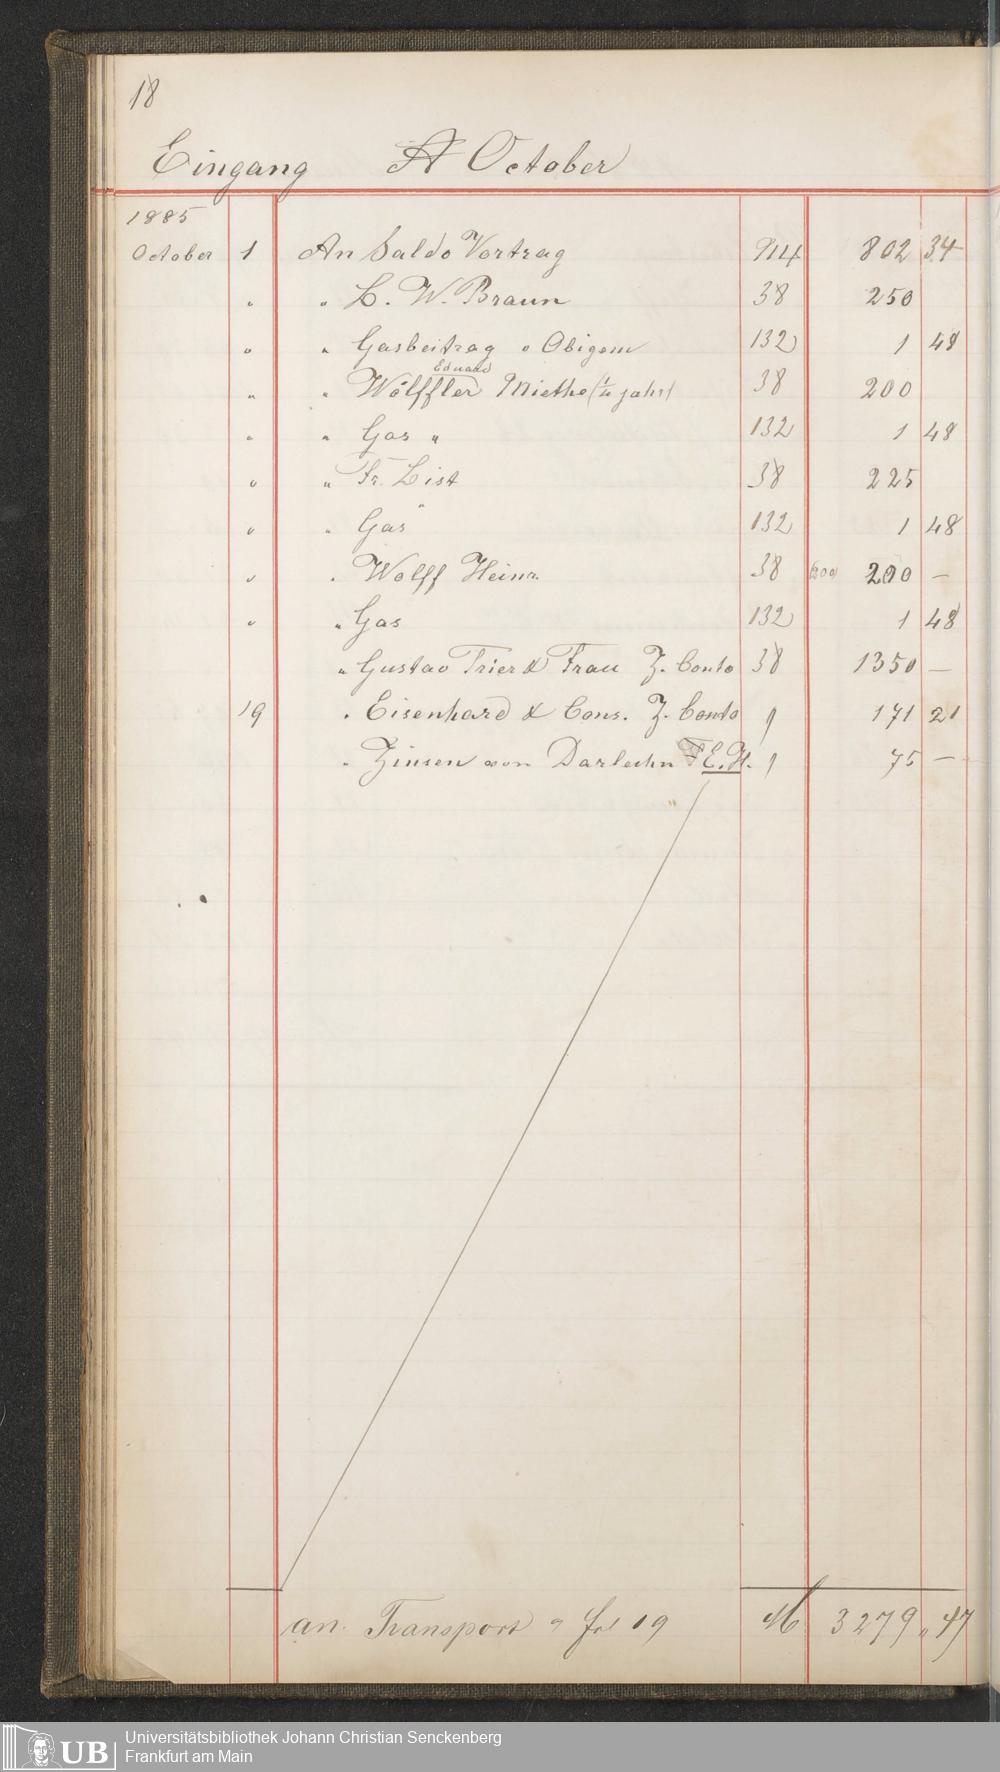 18
Eingang October
1885
October 1 An Saldo Vortrag 802 34
" " L. W. Braun 38 250
" " Gasbeitrag " Obigem 132 1 48
Eduard
" " Wölffler Miethe (1/4 jahr) 38 200
" " Gas " 132 1 48
" " Fr. List 38 225
" " Gas " 132 1 48
" " Wolff Heinr. 38 (200) 200 —
" " Gas 132 1 48
" Gustav Trier & Frau Z. Conto 38 1350 —
19 " Eisenhard & Cons. Z. Conto 9 171 21
" Zinsen von Darlehn E.H. 9 75 —
an Transport fol 19 M 3279 " 47
UB Universitätsbibliothek Johann Christian Senckenberg
Frankfurt am Main